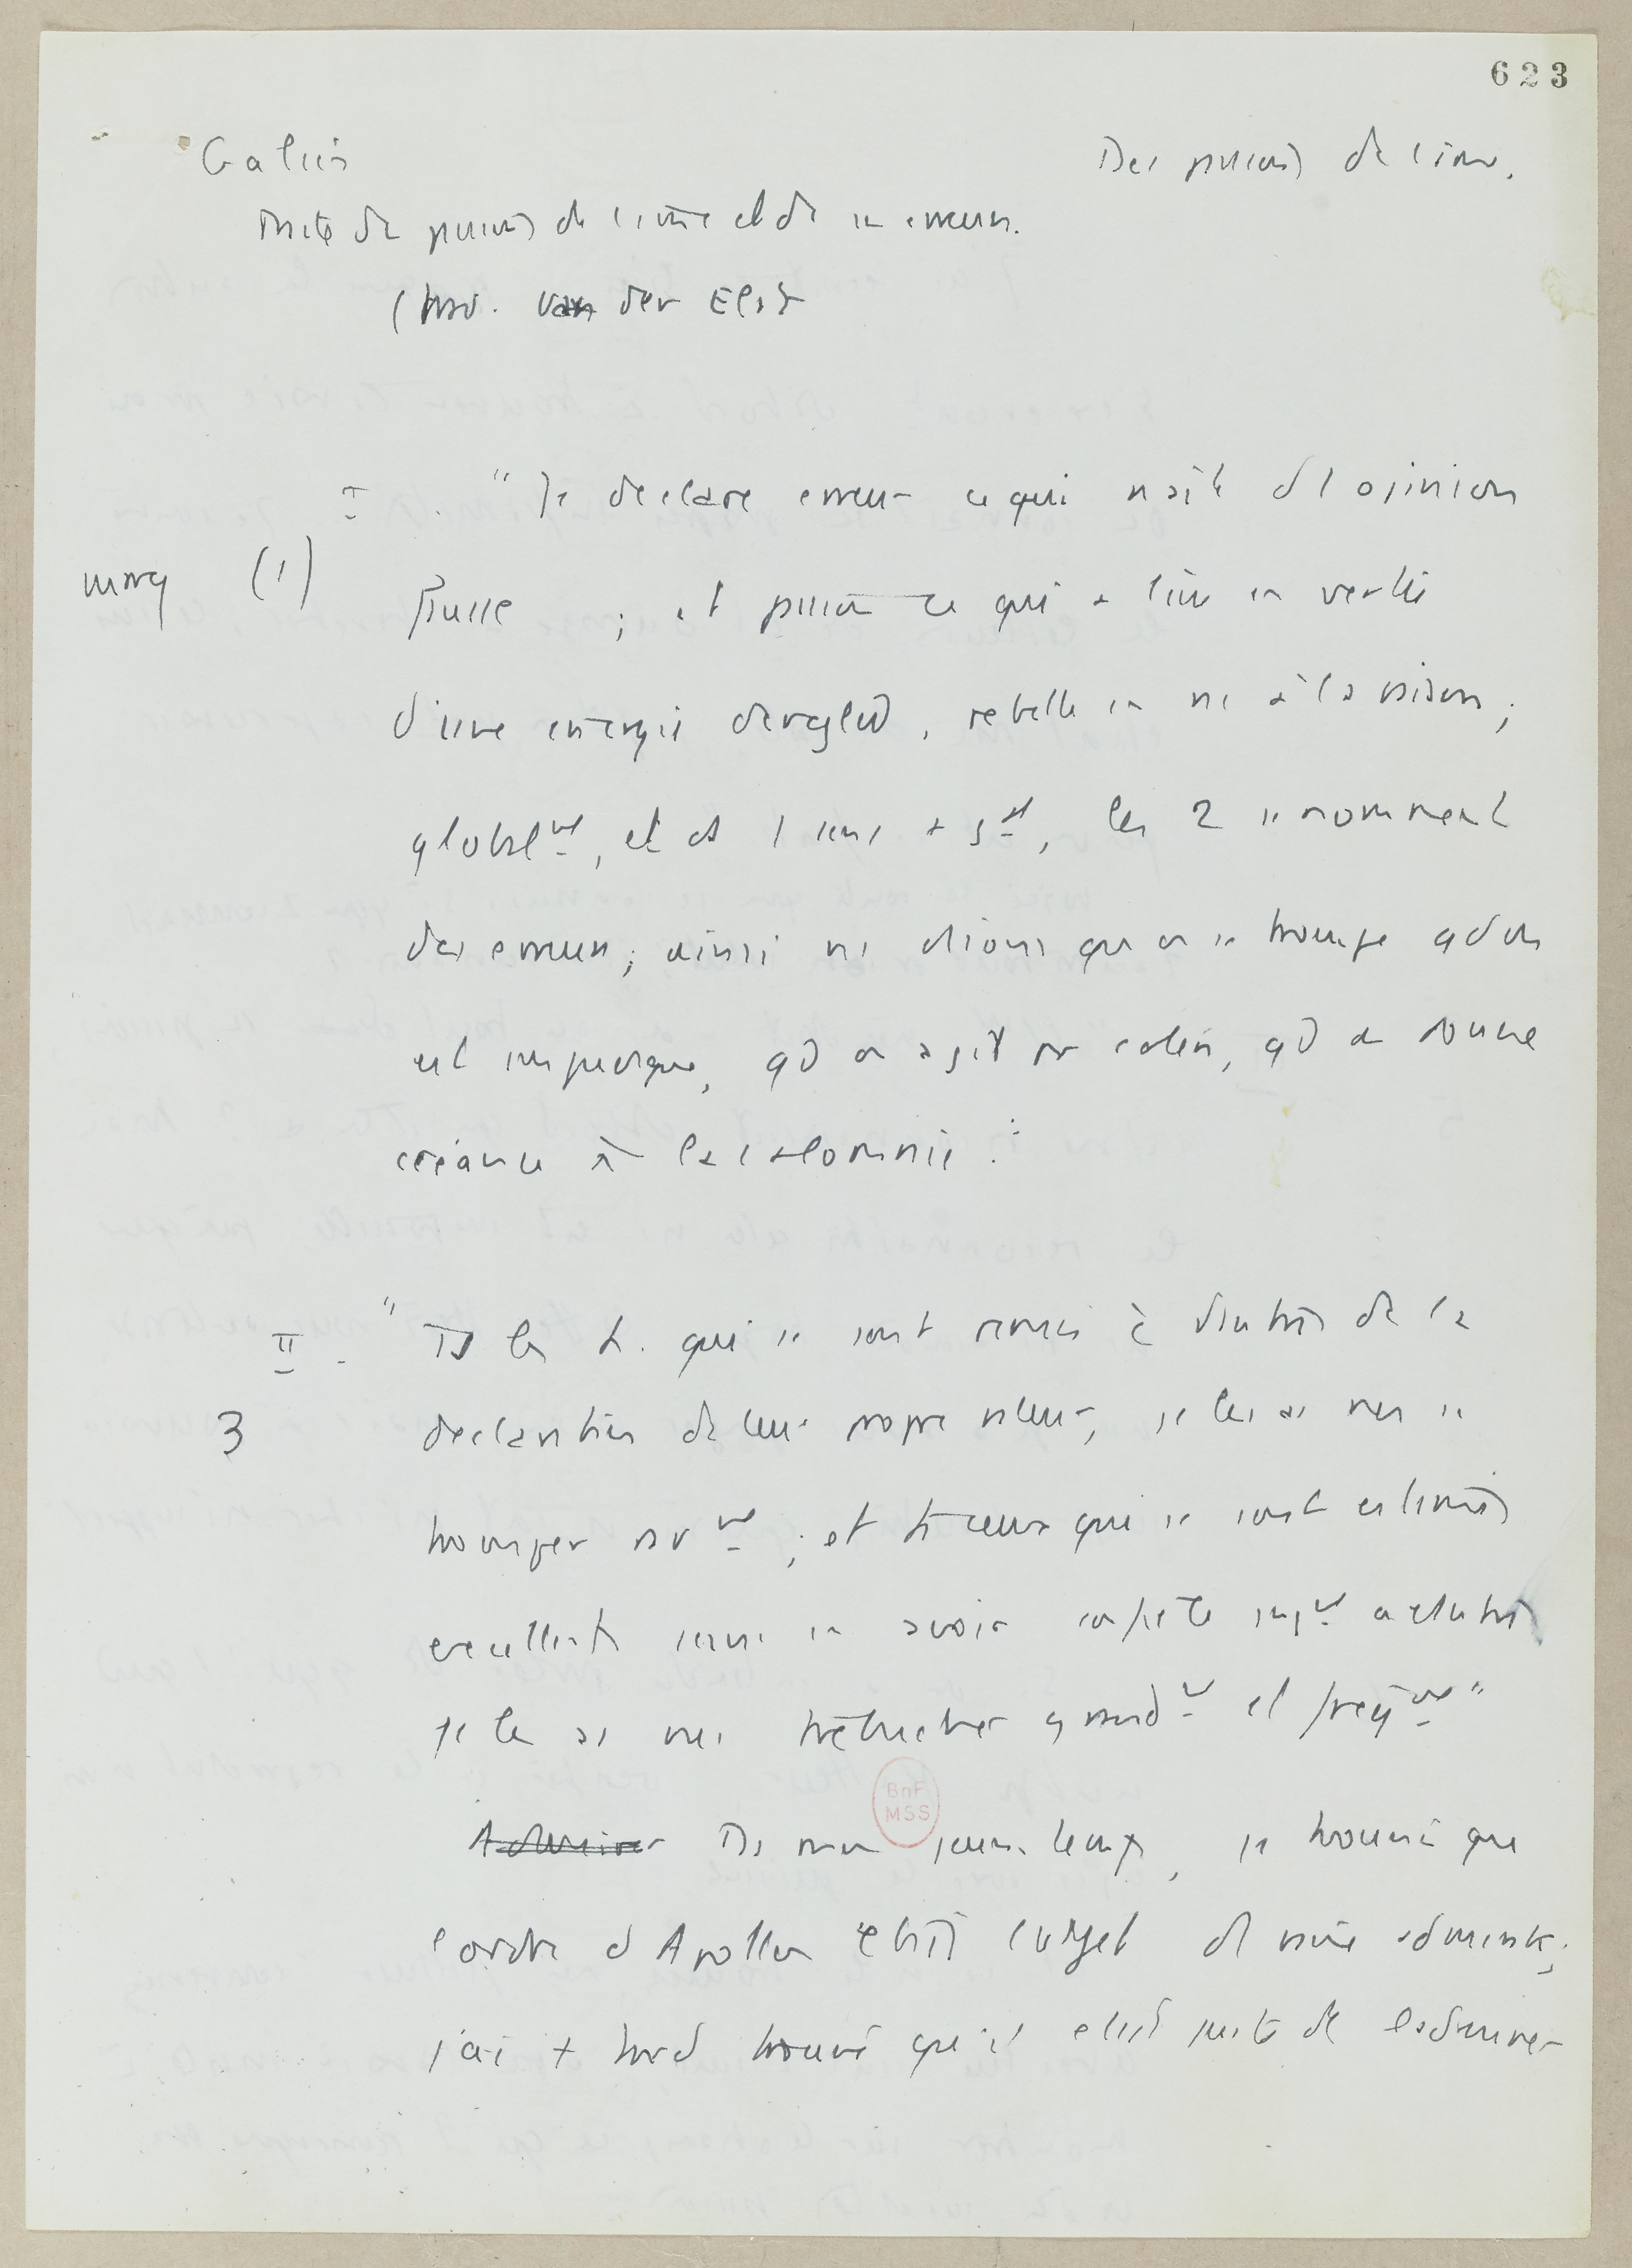 623
Galien
Des passions de l'âme.
Traité des passions de l'âme et de ses erreurs.
(trad. van der Elst
I. "Je déclare erreur ce qui naît d'1 opinion
marg (1) fausse ; et passion ce qui a lieu en vertu
d'une énergie déréglée, rebelle en ns à la raison ;
globalmt, et ds 1 sens + gal, les 2 se nomment
des erreurs ; ainsi ns disons qu'on se trompe qd on
est impudique, qd on agit par colère, qd on donne
créance à la calomnie."
II. "Ts les h. qui se sont remis à d'autres de la
3 déclaration de leur propre valeur, je les ai vus se
tromper rarmt ; et ts ceux qui se sont estimés
excellents sans en avoir confié le jugmt à d'autres
je les ai vus trébucher grandmt et fréqmt"
Ds mon jeune temps, je trouvai que
l'ordre d'Apollon était l'objet d'1 vaine admirat° ;
j'ai + tard trouvé qu'il était juste de l'admirer
BnF
MSS